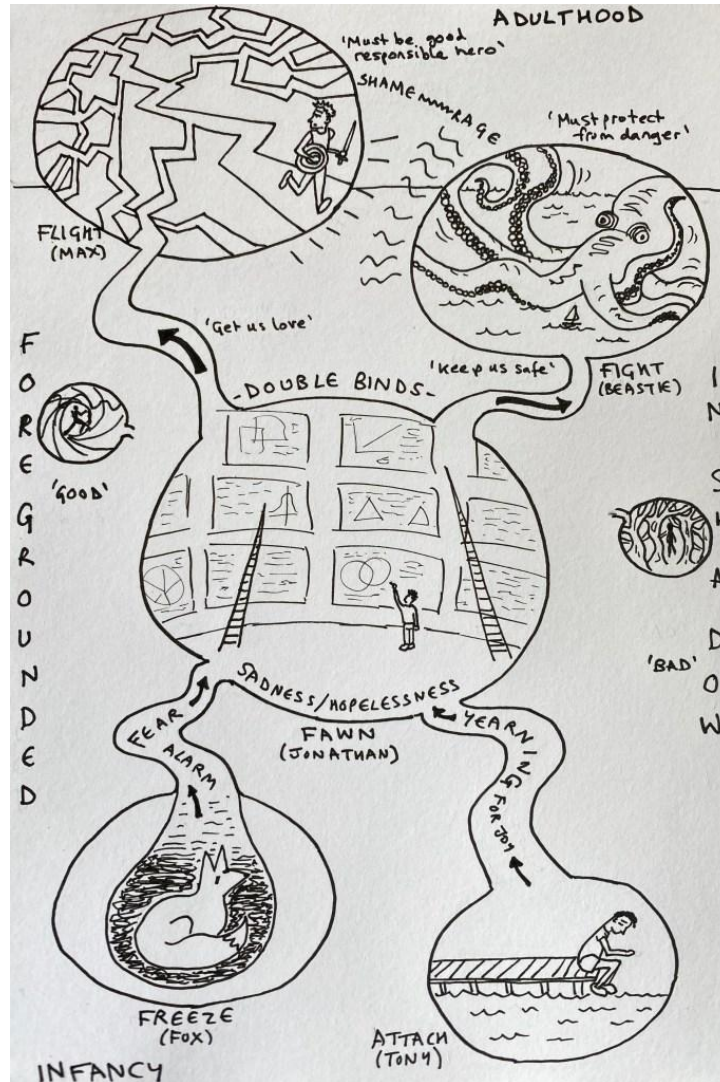 ADULTHOOD
'Must be good
responsible hero'
SHAME RAGE
'Must protect
from danger'
FLIGHT
(MAX)
'Get us love'
'Keep us safe'
FIGHT
(BEASTIE)
-DOUBLE BINDS-
FOREGROUNDED
'GOOD'
IN SHADOW
'BAD'
SADNESS/HOPELESSNESS
FAWN
(JONATHAN)
FEAR
ALARM
YEARNING
FOR JOY
FREEZE
(FOX)
ATTACH
(TONY)
INFANCY